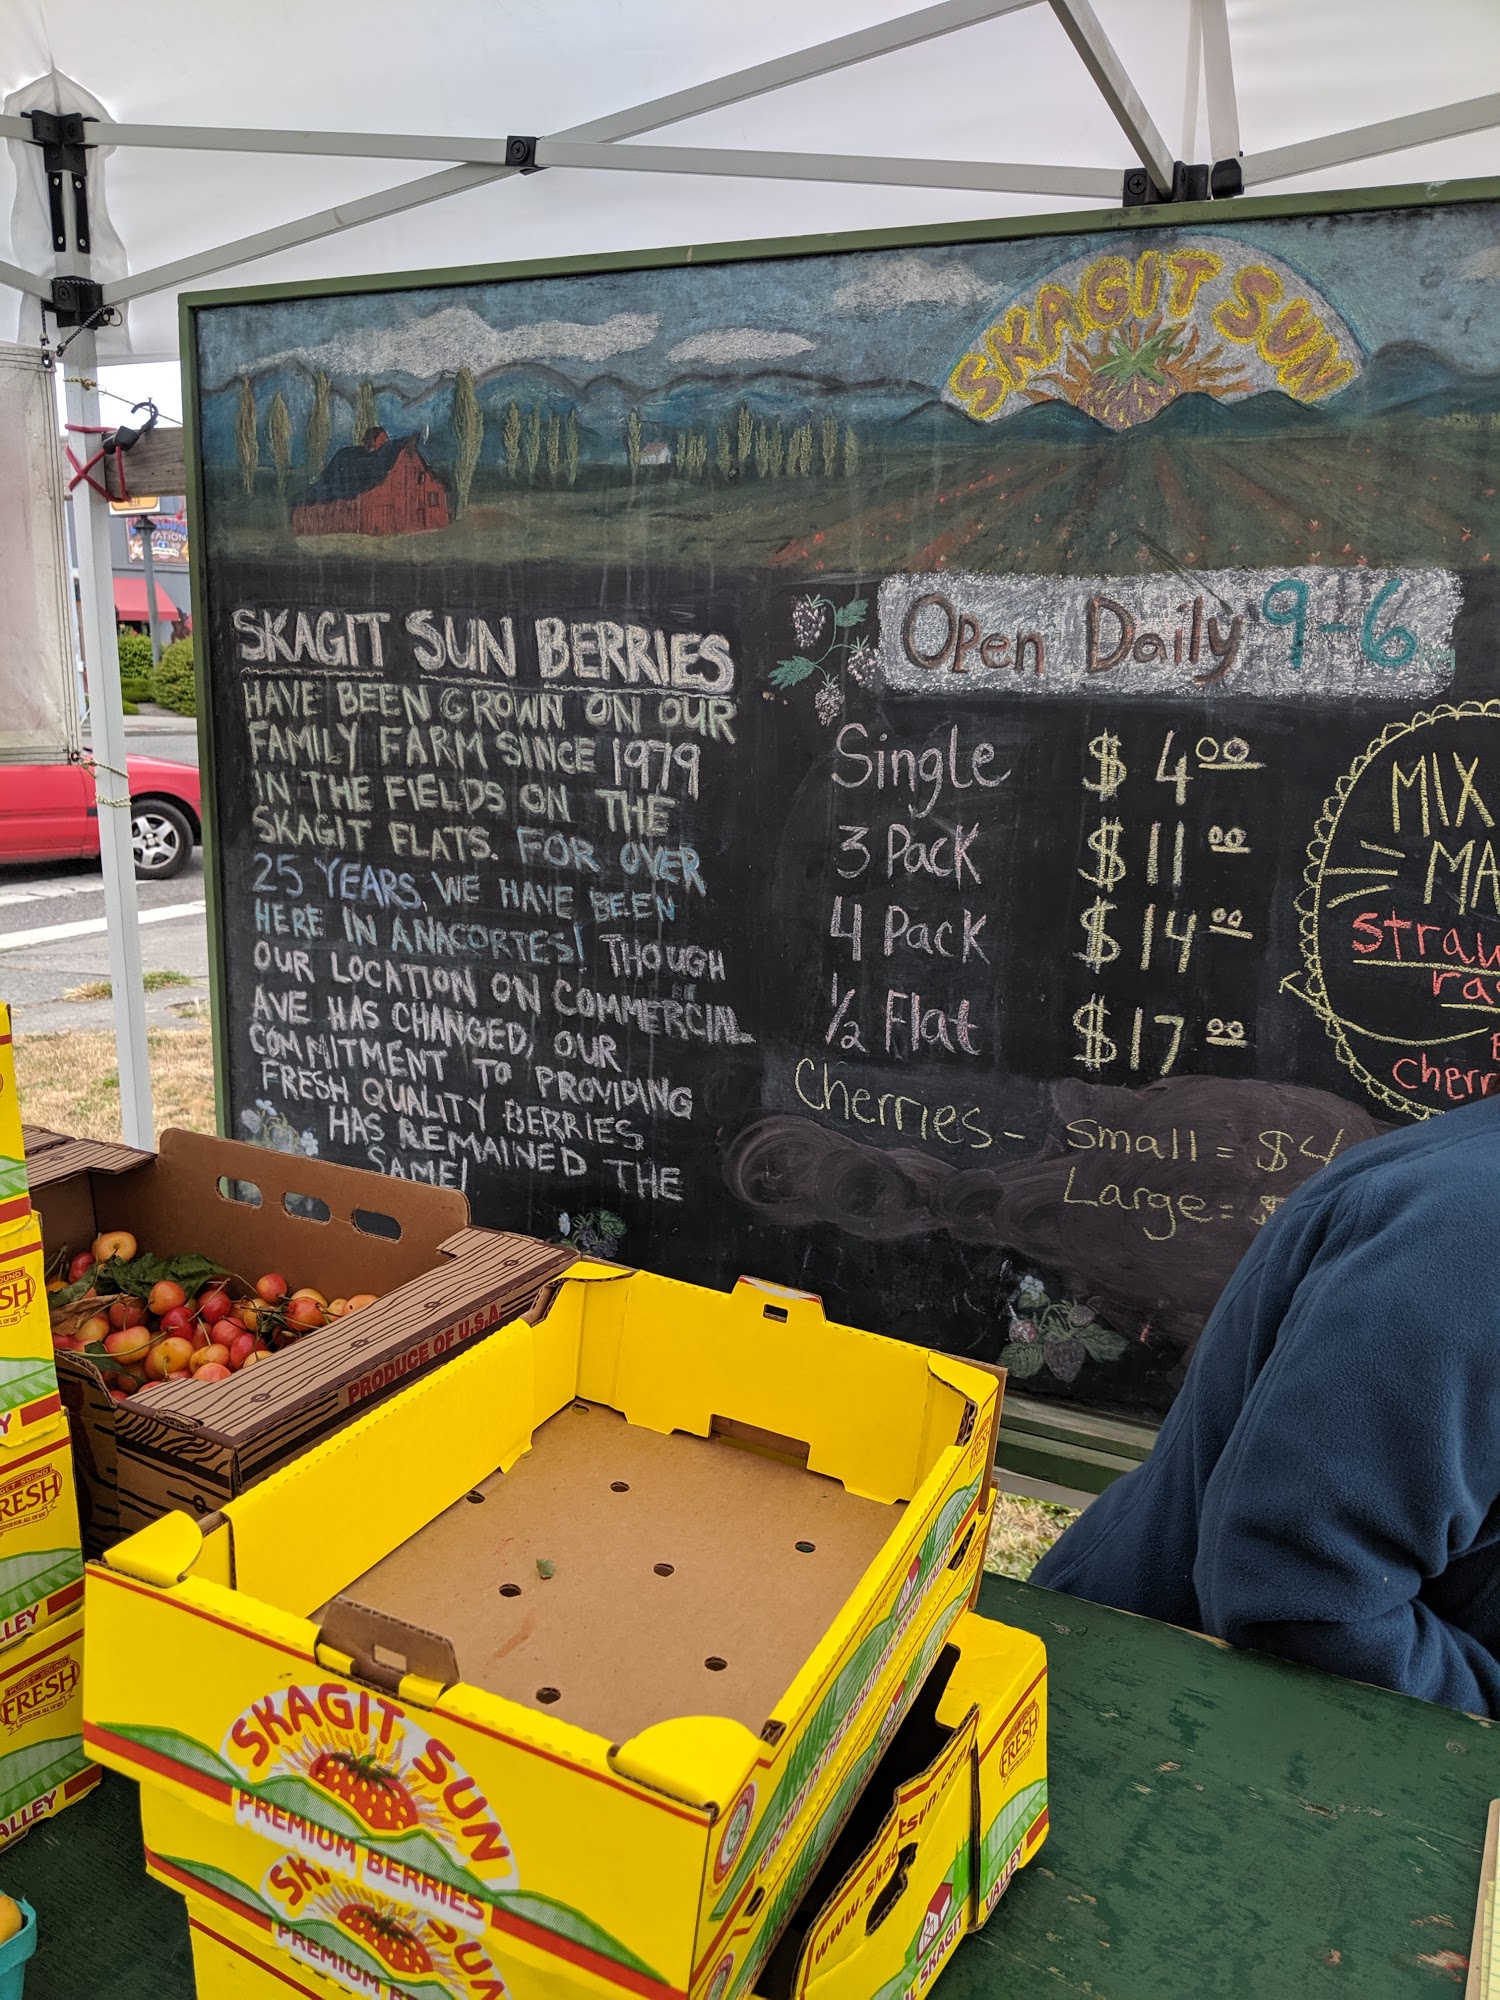 SKAGIT SUN
Open Daily 9-6
SKAGIT SUN BERRIES
HAVE BEEN GROWN ON OUR
FAMILY FARM SINCE 1979
IN THE FIELDS ON THE
SKAGIT FLATS. FOR OVER
25 YEARS, WE HAVE BEEN
HERE IN ANACORTES! THOUGH
OUR LOCATION ON COMMERCIAL
AVE HAS CHANGED, OUR
COMMITMENT TO PROVIDING
FRESH QUALITY BERRIES
HAS REMAINED THE
SAME!
Single $4.00
3 Pack $11.00
4 Pack $14.00
1/2 Flat $17.00
Cherries - Small = $4
Large = $
MIX
MA
straw
ra
cherr
PRODUCE OF U.S.A.
SKAGIT SUN
PREMIUM BERRIES
SUN
PREMIUM BE
GROWN IN THE BEAUTIFUL SKAGIT VALLEY
www.skagitsun.com
SKAGIT VALLEY
PUGET SOUND
FRESH
PUGET SOUND
FRESH
RESH
LLEY
ALLEY